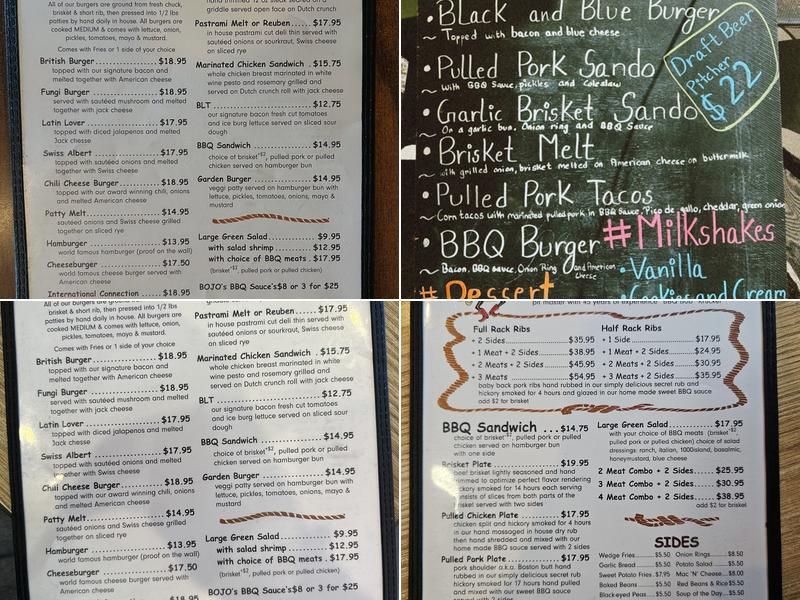 All of our burgers are ground from fresh chuck,
brisket & short rib, then pressed into 1/2 lbs
patties by hand daily in house. All burgers are
cooked MEDIUM & comes with lettuce, onion,
pickles, tomatoes, mayo & mustard.
Comes with Fries or 1 side of your choice
British Burger $18.95
topped with our signature bacon and
melted together with American cheese
Fungi Burger $18.95
served with sautéed mushroom and melted
together with jack cheese
Latin Lover $17.95
topped with diced jalapenos and melted
Jack chesse
Swiss Albert $17.95
topped with sautéed onions and melted
together with Swiss cheese
Chili Cheese Burger $18.95
topped with our award winning chili, onions
and melted American cheese
Patty Melt $14.95
sautéed onions and Swiss cheese grilled
together on sliced rye
Hamburger $13.95
world famous hamburger (proof on the wall)
Cheeseburger $17.50
world famous cheese burger served with
American cheese
International Connection $18.95
griddle served open face on Dutch crunch
Pastrami Melt or Reuben $17.95
in house pastrami cut deli thin served with
sautéed onions or sourkraut, Swiss cheese
on sliced rye
Marinated Chicken Sandwich . $15.75
whole chicken breast marinated in white
wine pesto and rosemary grilled and
served on Dutch crunch roll with jack cheese
BLT $12.75
our signature bacon fresh cut tomatoes
and ice burg lettuce served on sliced sour
dough
BBQ Sandwich $14.95
choice of brisket+$2, pulled pork or pulled
chicken served on hamburger bun
Garden Burger $14.95
veggi patty served on hamburger bun with
lettuce, pickles, tomatoes, onions, mayo &
mustard
Large Green Salad $9.95
with salad shrimp $12.95
with choice of BBQ meats . $17.95
(brisket+$2, pulled pork or pulled chicken)
BOJO's BBQ Sauce's $8 or 3 for $25
• Black and Blue Burger
~ Topped with bacon and blue cheese
Draft Beer
Pitcher
$22
• Pulled Pork Sando
~ with BBQ Sauce, pickles and Coleslaw
• Garlic Brisket Sando
~ On a garlic bun, Onion ring and BBQ Sauce
• Brisket Melt
~ with grilled onion, brisket melted on American cheese on buttermilk
• Pulled Pork Tacos
~ Corn tacos with marinated pulled pork in BBQ Sauce, Pico de gallo, cheddar, green onion
• BBQ Burger
~ Bacon, BBQ sauce, Onion Ring and American Cheese
#Milkshakes
• Vanilla
Cookies and Cream
# Dessert
All of our burgers are ground from fresh chuck,
brisket & short rib, then pressed into 1/2 lbs
patties by hand daily in house. All burgers are
cooked MEDIUM & comes with lettuce, onion,
pickles, tomatoes, mayo & mustard.
Comes with Fries or 1 side of your choice
British Burger $18.95
topped with our signature bacon and
melted together with American cheese
Fungi Burger $18.95
served with sautéed mushroom and melted
together with jack cheese
Latin Lover $17.95
topped with diced jalapenos and melted
Jack chesse
Swiss Albert $17.95
topped with sautéed onions and melted
together with Swiss cheese
Chili Cheese Burger $18.95
topped with our award winning chili, onions
and melted American cheese
Patty Melt $14.95
sautéed onions and Swiss cheese grilled
together on sliced rye
Hamburger $13.95
world famous hamburger (proof on the wall)
Cheeseburger $17.50
world famous cheese burger served with
American cheese
Pastrami Melt or Reuben $17.95
in house pastrami cut deli thin served with
sautéed onions or sourkraut, Swiss cheese
on sliced rye
Marinated Chicken Sandwich . $15.75
whole chicken breast marinated in white
wine pesto and rosemary grilled and
served on Dutch crunch roll with jack cheese
BLT $12.75
our signature bacon fresh cut tomatoes
and ice burg lettuce served on sliced sour
dough
BBQ Sandwich $14.95
choice of brisket+$2, pulled pork or pulled
chicken served on hamburger bun
Garden Burger $14.95
veggi patty served on hamburger bun with
lettuce, pickles, tomatoes, onions, mayo &
mustard
Large Green Salad $9.95
with salad shrimp $12.95
with choice of BBQ meats . $17.95
(brisket+$2, pulled pork or pulled chicken)
BOJO's BBQ Sauce's $8 or 3 for $25
pit master with 45 years of experience
Full Rack Ribs
+ 2 Sides $35.95
+ 1 Meat + 2 Sides $38.95
+ 2 Meats + 2 Sides $45.95
+ 3 Meats $54.95
Half Rack Ribs
+ 1 Side $17.95
+ 1 Meat + 2 Sides $24.95
+ 2 Meats + 2 Sides $30.95
+ 3 Meats + 2 Sides $35.95
baby back pork ribs hand rubbed in our simply delicious secret rub and
hickory smoked for 4 hours and glazed in our home made sweet BBQ sauce
add $2 for brisket
BBQ Sandwich $14.75
choice of brisket+$2, pulled pork or pulled
chicken served on hamburger bun
with one side
Brisket Plate $19.95
beef brisket lightly seasoned and hand
trimmed to optimize perfect flavor rendering
hickory smoked for 14 hours each serving
consists of slices from both parts of the
brisket served with two sides
Pulled Chicken Plate $17.95
chicken split and hickory smoked for 4 hours
in our hand massaged in house dry rub
then hand shredded and mixed with our
home made BBQ sauce served with 2 sides
Pulled Pork Plate $17.95
pork shoulder a.k.a. Boston butt hand
rubbed in our simply delicious secret rub
hickory smoked for 17 hours hand pulled
and mixed with our sweet BBQ sauce
Large Green Salad $17.95
with your choice of BBQ meats (brisket+$2,
pulled pork or pulled chicken) choice of salad
dressings: ranch, italian, 1000island, basalmic,
honeymustard, blue cheese
2 Meat Combo + 2 Sides $25.95
3 Meat Combo + 2 Sides $30.95
4 Meat Combo + 2 Sides $38.95
add $2 for brisket
SIDES
Wedge Fries $5.50 Onion Rings $8.50
Garlic Bread $5.50 Potato Salad $5.50
Sweet Potato Fries $7.95 Mac 'N' Cheese $5.50
Baked Beans $5.50 Red Beans & Rice $5.50
Blackeyed Peas $5.50 Soup of the Day $5.50